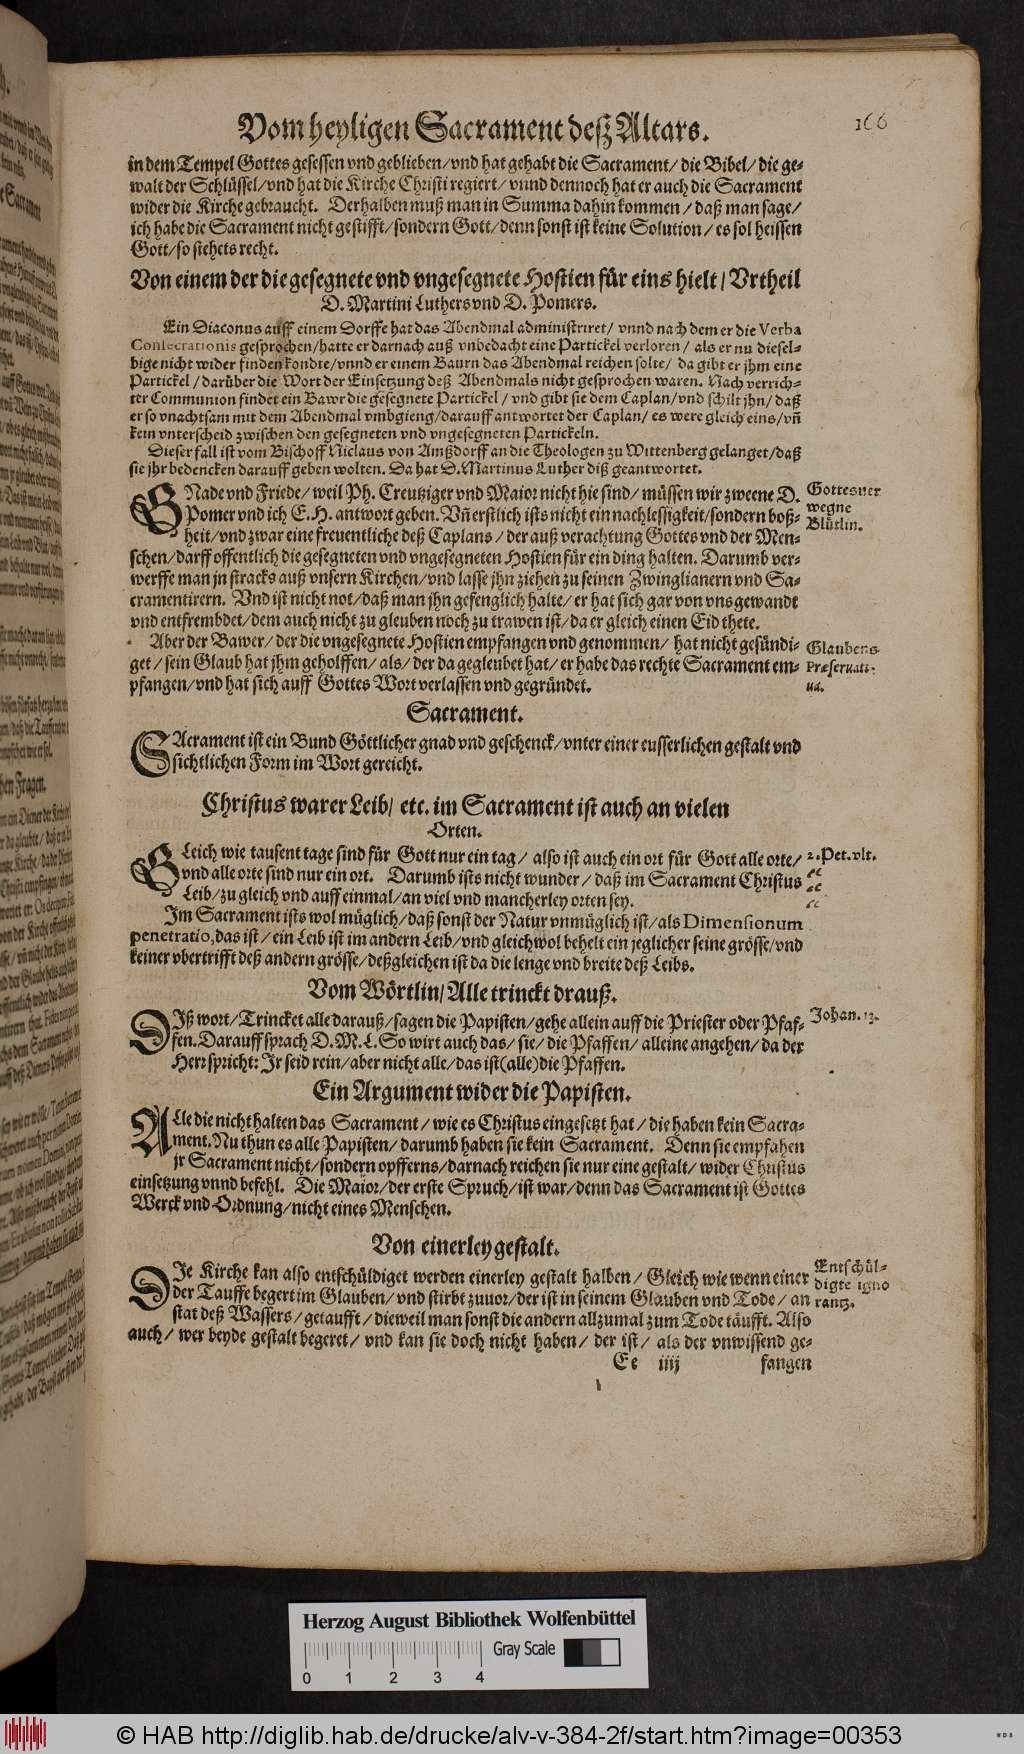 Vom heyligen Sacrament deß Altars.
166
in dem Tempel Gottes gesessen vnd geblieben/ vnd hat gehabt die Sacrament/ die Bibel/ die ge-
walt der Schlüssel/ vnd hat die Kirche Christi regiert/ vnnd dennoch hat er auch die Sacrament
wider die Kirche gebraucht. Derhalben muß man in Summa dahin kommen/ daß man sage/
ich habe die Sacrament nicht gestifft/ sondern Gott/ denn sonst ist keine Solution/ es sol heissen
Gott/ so stehets recht.
Von einem der die gesegnete vnd vngesegnete Hostien für eins hielt/ Vrtheil
D. Martini Luthers vnd D. Pomers.
Ein Diaconus auff einem Dorffe hat das Abendmal administriret/ vnnd nach dem er die Verba
Consecrationis gesprochen/ hatte er darnach auß vnbedacht eine Partickel verloren/ als er nu diesel-
bige nicht wider finden kondte/ vnnd er einem Baurn das Abendmal reichen solte/ da gibt er jhm eine
Partickel/ darüber die Wort der Einsetzung deß Abendmals nicht gesprochen waren. Nach verrich-
ter Communion findet ein Bawr die gesegnete Partickel/ vnd gibt sie dem Caplan/ vnd schilt jhn/ daß
er so vnachtsam mit dem Abendmal vmbgieng/ darauff antwortet der Caplan/ es were gleich eins/ vñ
kein vnterscheid zwischen den gesegneten vnd vngesegneten Partickeln.
Dieser fall ist vom Bischoff Niclaus von Amßdorff an die Theologen zu Wittenberg gelanget/ daß
sie jhr bedencken darauff geben wolten. Da hat D. Martinus Luther diß geantwortet.
GNade vnd Friede/ weil Ph. Creutziger vnd Maior nicht hie sind/ müssen wir zweene D.
Pomer vnd ich E. H. antwort geben. Vñ erstlich ists nicht ein nachlessigkeit/ sondern boß-
heit/ vnd zwar eine freuentliche deß Caplans/ der auß verachtung Gottes vnd der Men-
schen/ darff offentlich die gesegneten vnd vngesegneten Hostien für ein ding halten. Darumb ver-
werffe man jn stracks auß vnsern Kirchen/ vnd lasse jhn ziehen zu seinen Zwinglianern vnd Sa-
cramentirern. Vnd ist nicht not/ daß man jhn gefenglich halte/ er hat sich gar von vns gewandt
vnd entfrembdet/ dem auch nicht zu gleuben noch zu trawen ist/ da er gleich einen Eid thete.
Gottesuer
wegne
Blütlin.
Aber der Bawer/ der die vngesegnete Hostien empfangen vnd genommen/ hat nicht gesündi-
get/ sein Glaub hat jhm geholffen/ als/ der da gegleubet hat/ er habe das rechte Sacrament em-
pfangen/ vnd hat sich auff Gottes Wort verlassen vnd gegründet.
Glaubens
Præseruati-
ua.
Sacrament.
SAcrament ist ein Bund Göttlicher gnad vnd geschenck/ vnter einer eusserlichen gestalt vnd
sichtlichen Form im Wort gereicht.
Christus warer Leib/ etc. im Sacrament ist auch an vielen
Orten.
GLeich wie tausent tage sind für Gott nur ein tag/ also ist auch ein ort für Gott alle orte/
vnd alle orte sind nur ein ort. Darumb ists nicht wunder/ daß im Sacrament Christus
Leib/ zu gleich vnd auff einmal/ an viel vnd mancherley orten sey.
2. Pet. vlt.
Im Sacrament ists wol müglich/ daß sonst der Natur vnmüglich ist/ als Dimensionum
penetratio, das ist/ ein Leib ist im andern Leib/ vnd gleichwol behelt ein jeglicher seine grösse/ vnd
keiner vbertrifft deß andern grösse/ deßgleichen ist da die lenge vnd breite deß Leibs.
Vom Wörtlin/ Alle trinckt drauß.
DIß wort/ Trincket alle darauß/ sagen die Papisten/ gehe allein auff die Priester oder Pfaf-
fen. Darauff sprach D. M. L. So wirt auch das/ sie/ die Pfaffen/ alleine angehen/ da der
Herr spricht: Jr seid rein/ aber nicht alle/ das ist (alle) die Pfaffen.
Johan. 13.
Ein Argument wider die Papisten.
ALle die nicht halten das Sacrament/ wie es Christus eingesetzt hat/ die haben kein Sacra-
ment. Nu thun es alle Papisten/ darumb haben sie kein Sacrament. Denn sie empfahen
jr Sacrament nicht/ sondern opfferns/ darnach reichen sie nur eine gestalt/ wider Christus
einsetzung vnnd befehl. Die Maior/ der erste Spruch/ ist war/ denn das Sacrament ist Gottes
Werck vnd Ordnung/ nicht eines Menschen.
Von einerley gestalt.
DIe Kirche kan also entschüldiget werden einerley gestalt halben/ Gleich wie wenn einer
der Tauffe begert im Glauben/ vnd stirbt zuuor/ der ist in seinem Glauben vnd Tode/ an
stat deß Wassers/ getaufft/ dieweil man sonst die andern allzumal zum Tode täufft. Also
auch/ wer beyde gestalt begeret/ vnd kan sie doch nicht haben/ der ist/ als der vnwissend ge-
Entschül-
digte igno
rantz.
Ee iiij fangen
Herzog August Bibliothek Wolfenbüttel
0 1 2 3 4
Gray Scale
© HAB http://diglib.hab.de/drucke/alv-v-384-2f/start.htm?image=00353